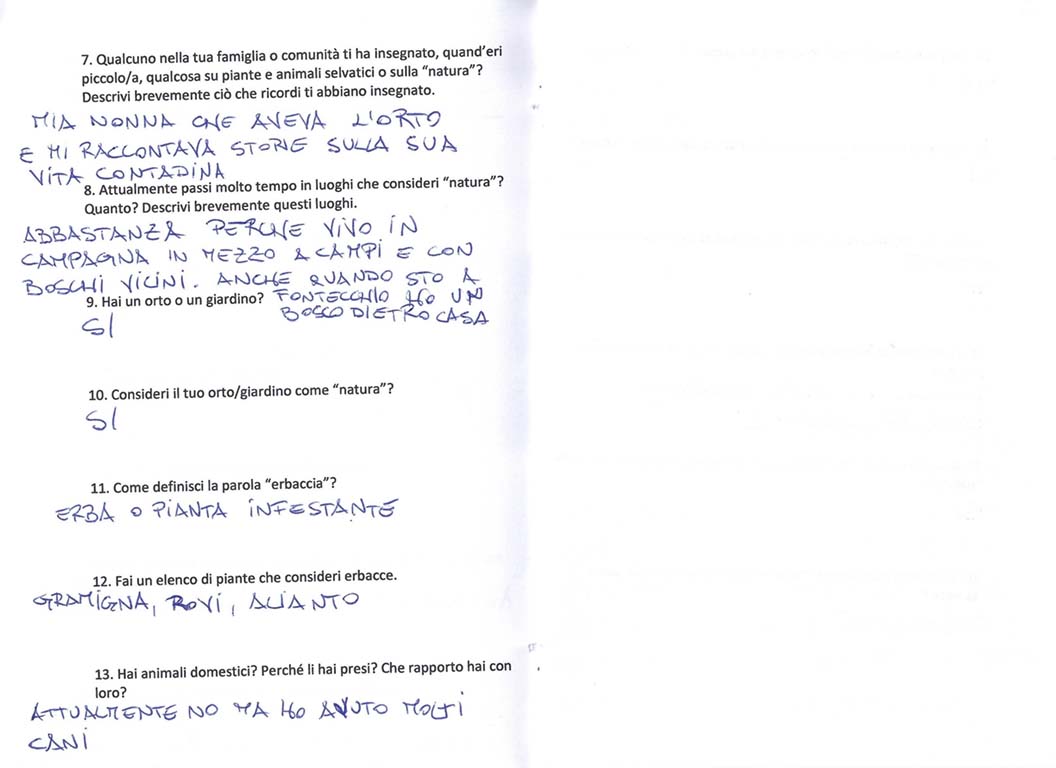 7. Qualcuno nella tua famiglia o comunità ti ha insegnato, quand'eri
piccolo/a, qualcosa su piante e animali selvatici o sulla "natura"?
Descrivi brevemente ciò che ricordi ti abbiano insegnato.
MIA NONNA CHE AVEVA L'ORTO
E MI RACCONTAVA STORIE SULLA SUA
VITA CONTADINA
8. Attualmente passi molto tempo in luoghi che consideri "natura"?
Quanto? Descrivi brevemente questi luoghi.
ABBASTANZA PERCHE VIVO IN
CAMPAGNA IN MEZZO A CAMPI E CON
BOSCHI VICINI. ANCHE QUANDO STO A
FONTECCHIO HO UN
BOSCO DIETRO CASA
9. Hai un orto o un giardino?
SI
10. Consideri il tuo orto/giardino come "natura"?
SI
11. Come definisci la parola "erbaccia"?
ERBA O PIANTA INFESTANTE
12. Fai un elenco di piante che consideri erbacce.
GRAMIGNA, ROVI, ALIANTO
13. Hai animali domestici? Perché li hai presi? Che rapporto hai con
loro?
ATTUALMENTE NO MA HO AVUTO MOLTI
CANI